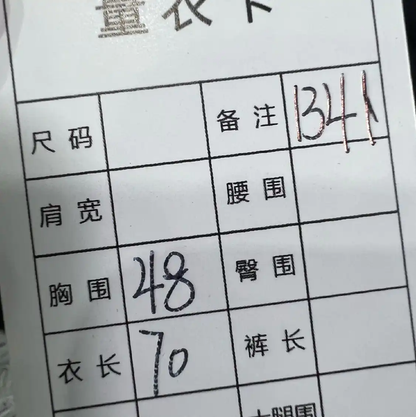 量衣卡
尺码 备注 1341
肩宽 腰围
胸围 48 臀围
衣长 70 裤长
大腿围